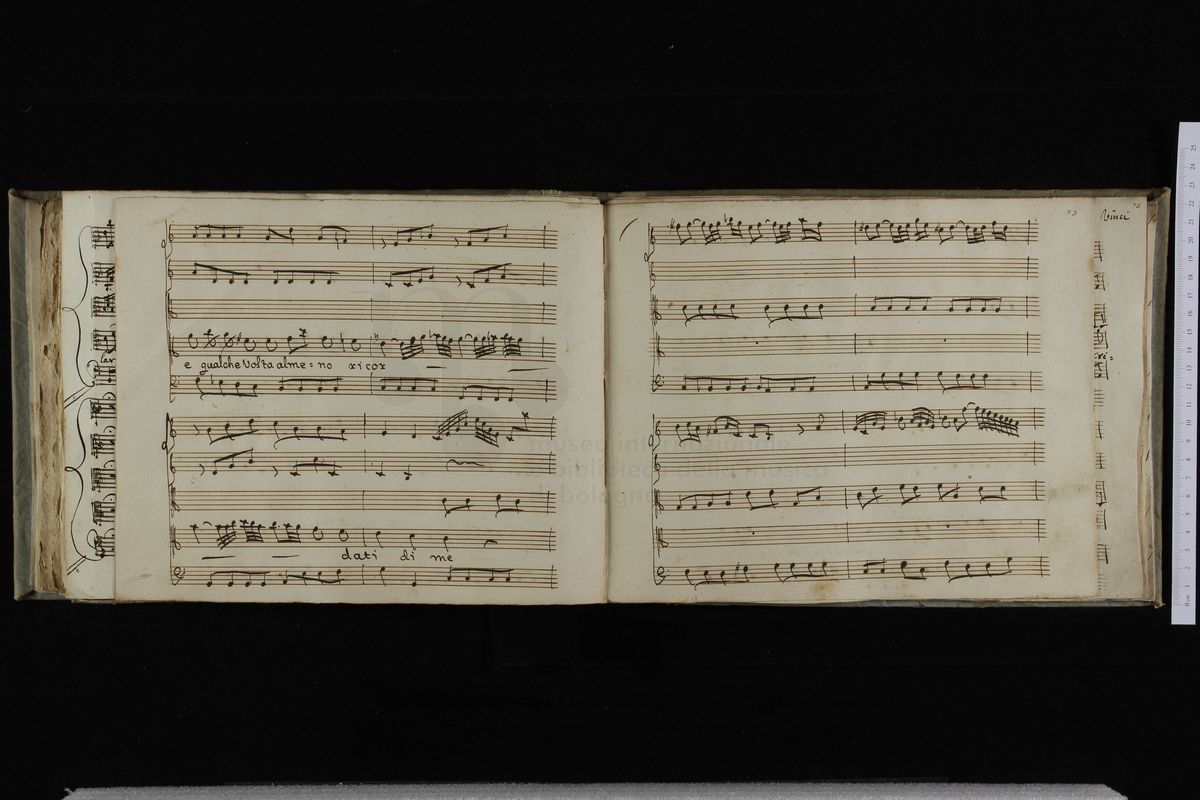 e qualche volta alme=no ricor
dati di me
73
75
Vinci
museo internazionale
e biblioteca della musica
di bologna
0 cm 1 2 3 4 5 6 7 8 9 10 11 12 13 14 15 16 17 18 19 20 21 22 23 24 25